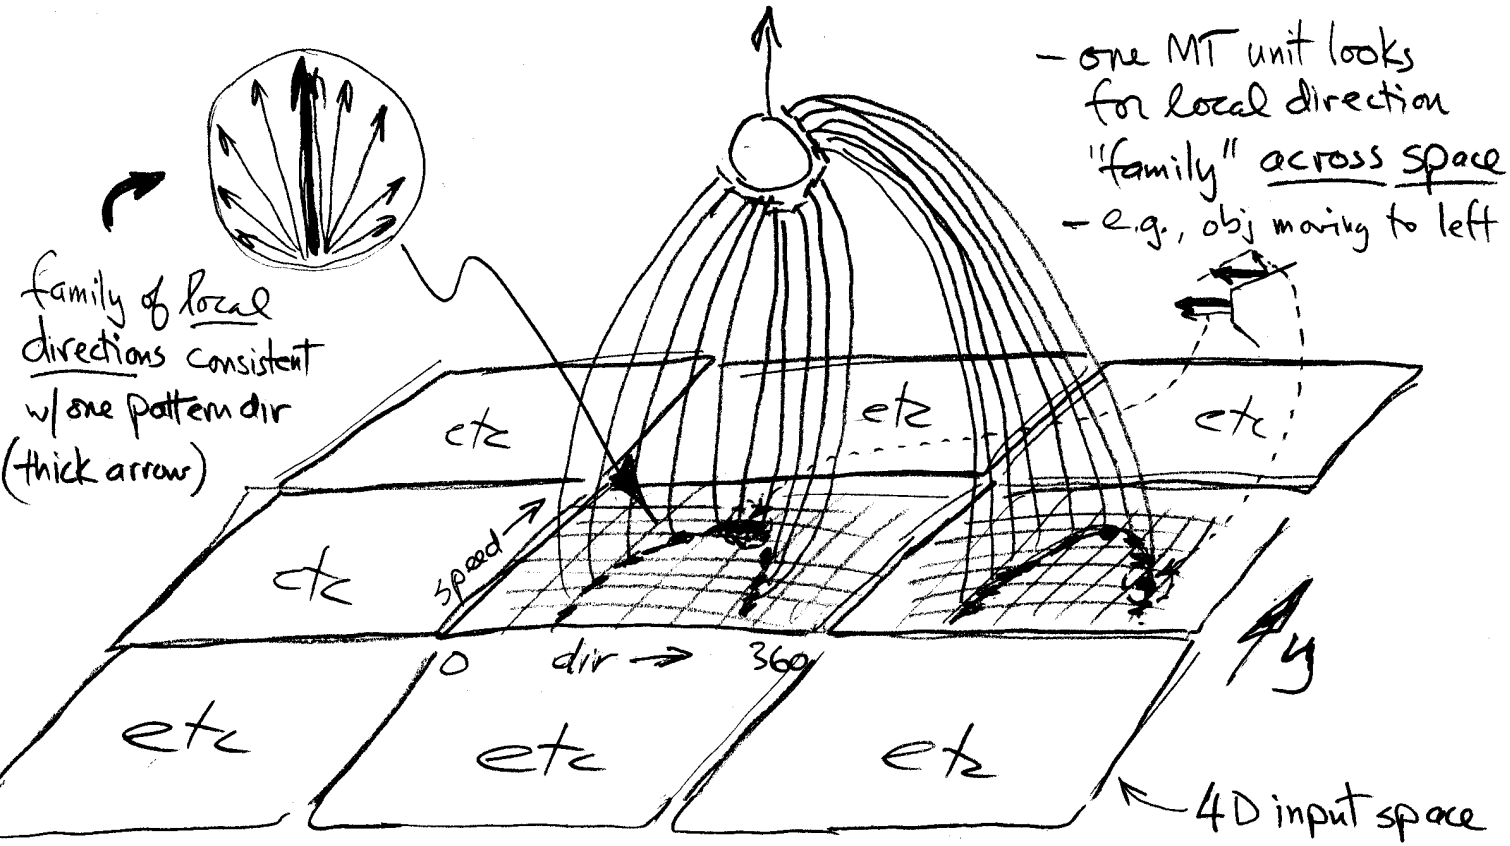 - one MT unit looks
for local direction
"family" across space
- e.g., obj moving to left
family of local
directions consistent
w/ one pattern dir
(thick arrow)
etc
etc
etc
etc
speed
0 dir 360
y
etc
etc
etc
4D input space